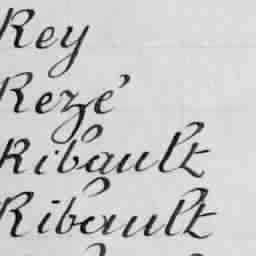 Rey
Rezé
Ribault
Ribault